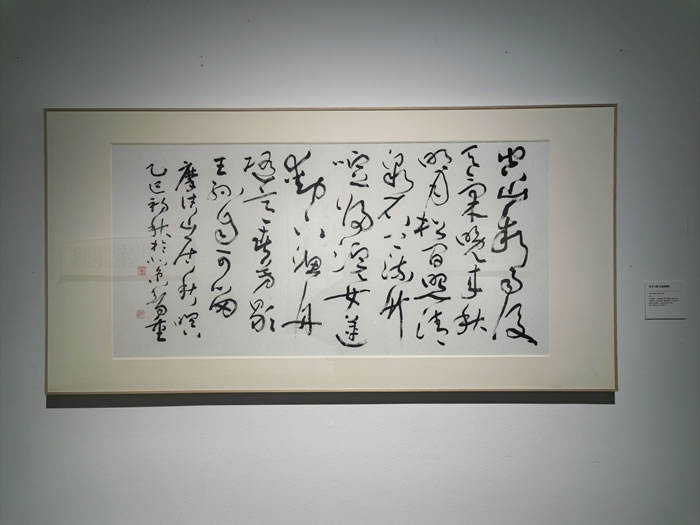 空山新雨後
天氣晚來秋
明月松間照清
泉石上流竹
喧歸浣女蓮
動下漁舟
隨意春芳歇
王孫自可留
摩詰山居秋暝
乙巳初秋於